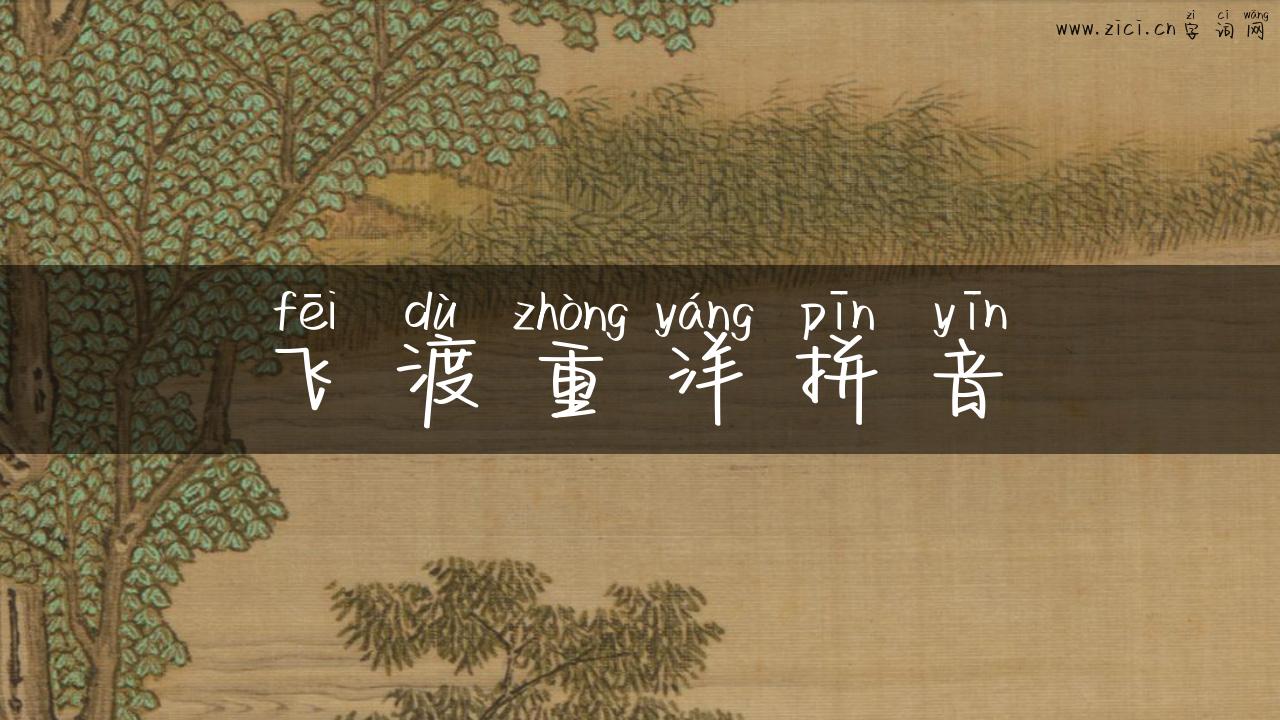 zì cí wǎng
www.zici.cn字词网
fēi dù zhòng yáng pīn yīn
飞渡重洋拼音